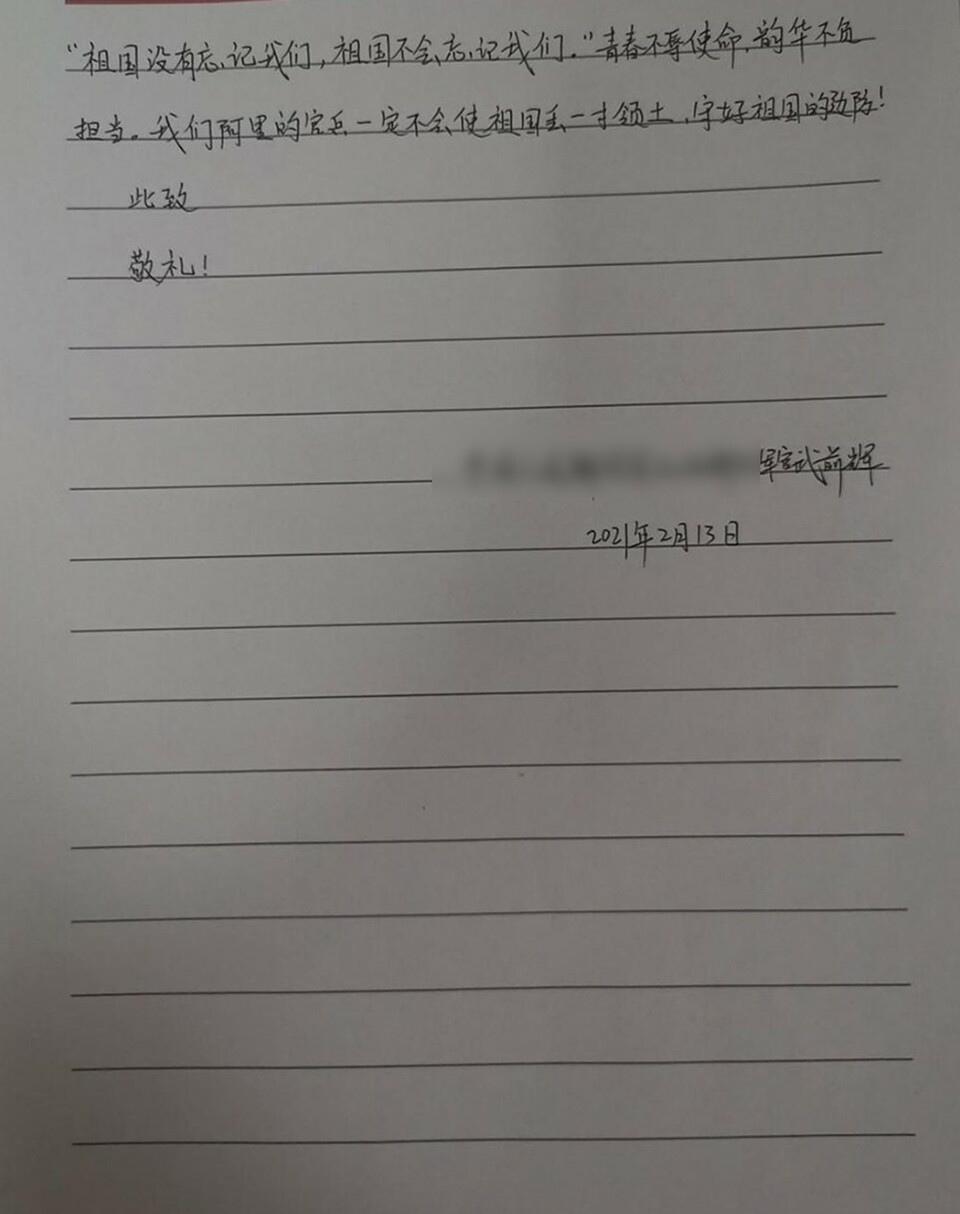 “祖国没有忘记我们，祖国不会忘记我们。”青春不辱使命，韵华不负
担当。我们阿里的官兵一定不会使祖国丢一寸领土，守好祖国的边防！
此致
敬礼！
军官武前辉
2021年2月13日